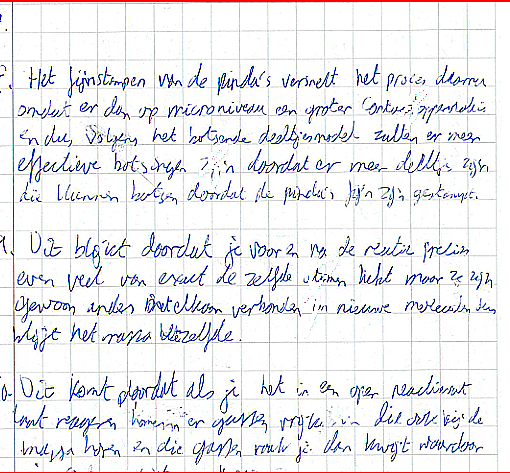 Het fijnstampen van de pinda's versnelt het proces daarom
omdat er dan op microniveau een groter contactoppervlakte
en dus volgens het botsende deeltjesmodel zullen er meer
effectieve botsingen zijn doordat er meer deeltjes zijn
die kunnen botsen doordat de pinda's fijn zijn gestampt.
9. Dit blijkt doordat je voor en na de reactie precies
even veel van exact de zelfde atomen hebt maar ze zijn
gewoon anders met elkaar verbonden in nieuwe moleculen dus
blijft het massa hetzelfde.
10. Dit komt doordat als je het in een open reactievat
laat reageren komen er gassen vrij die ook bij de
massa horen en die gassen raak je dan kwijt waardoor